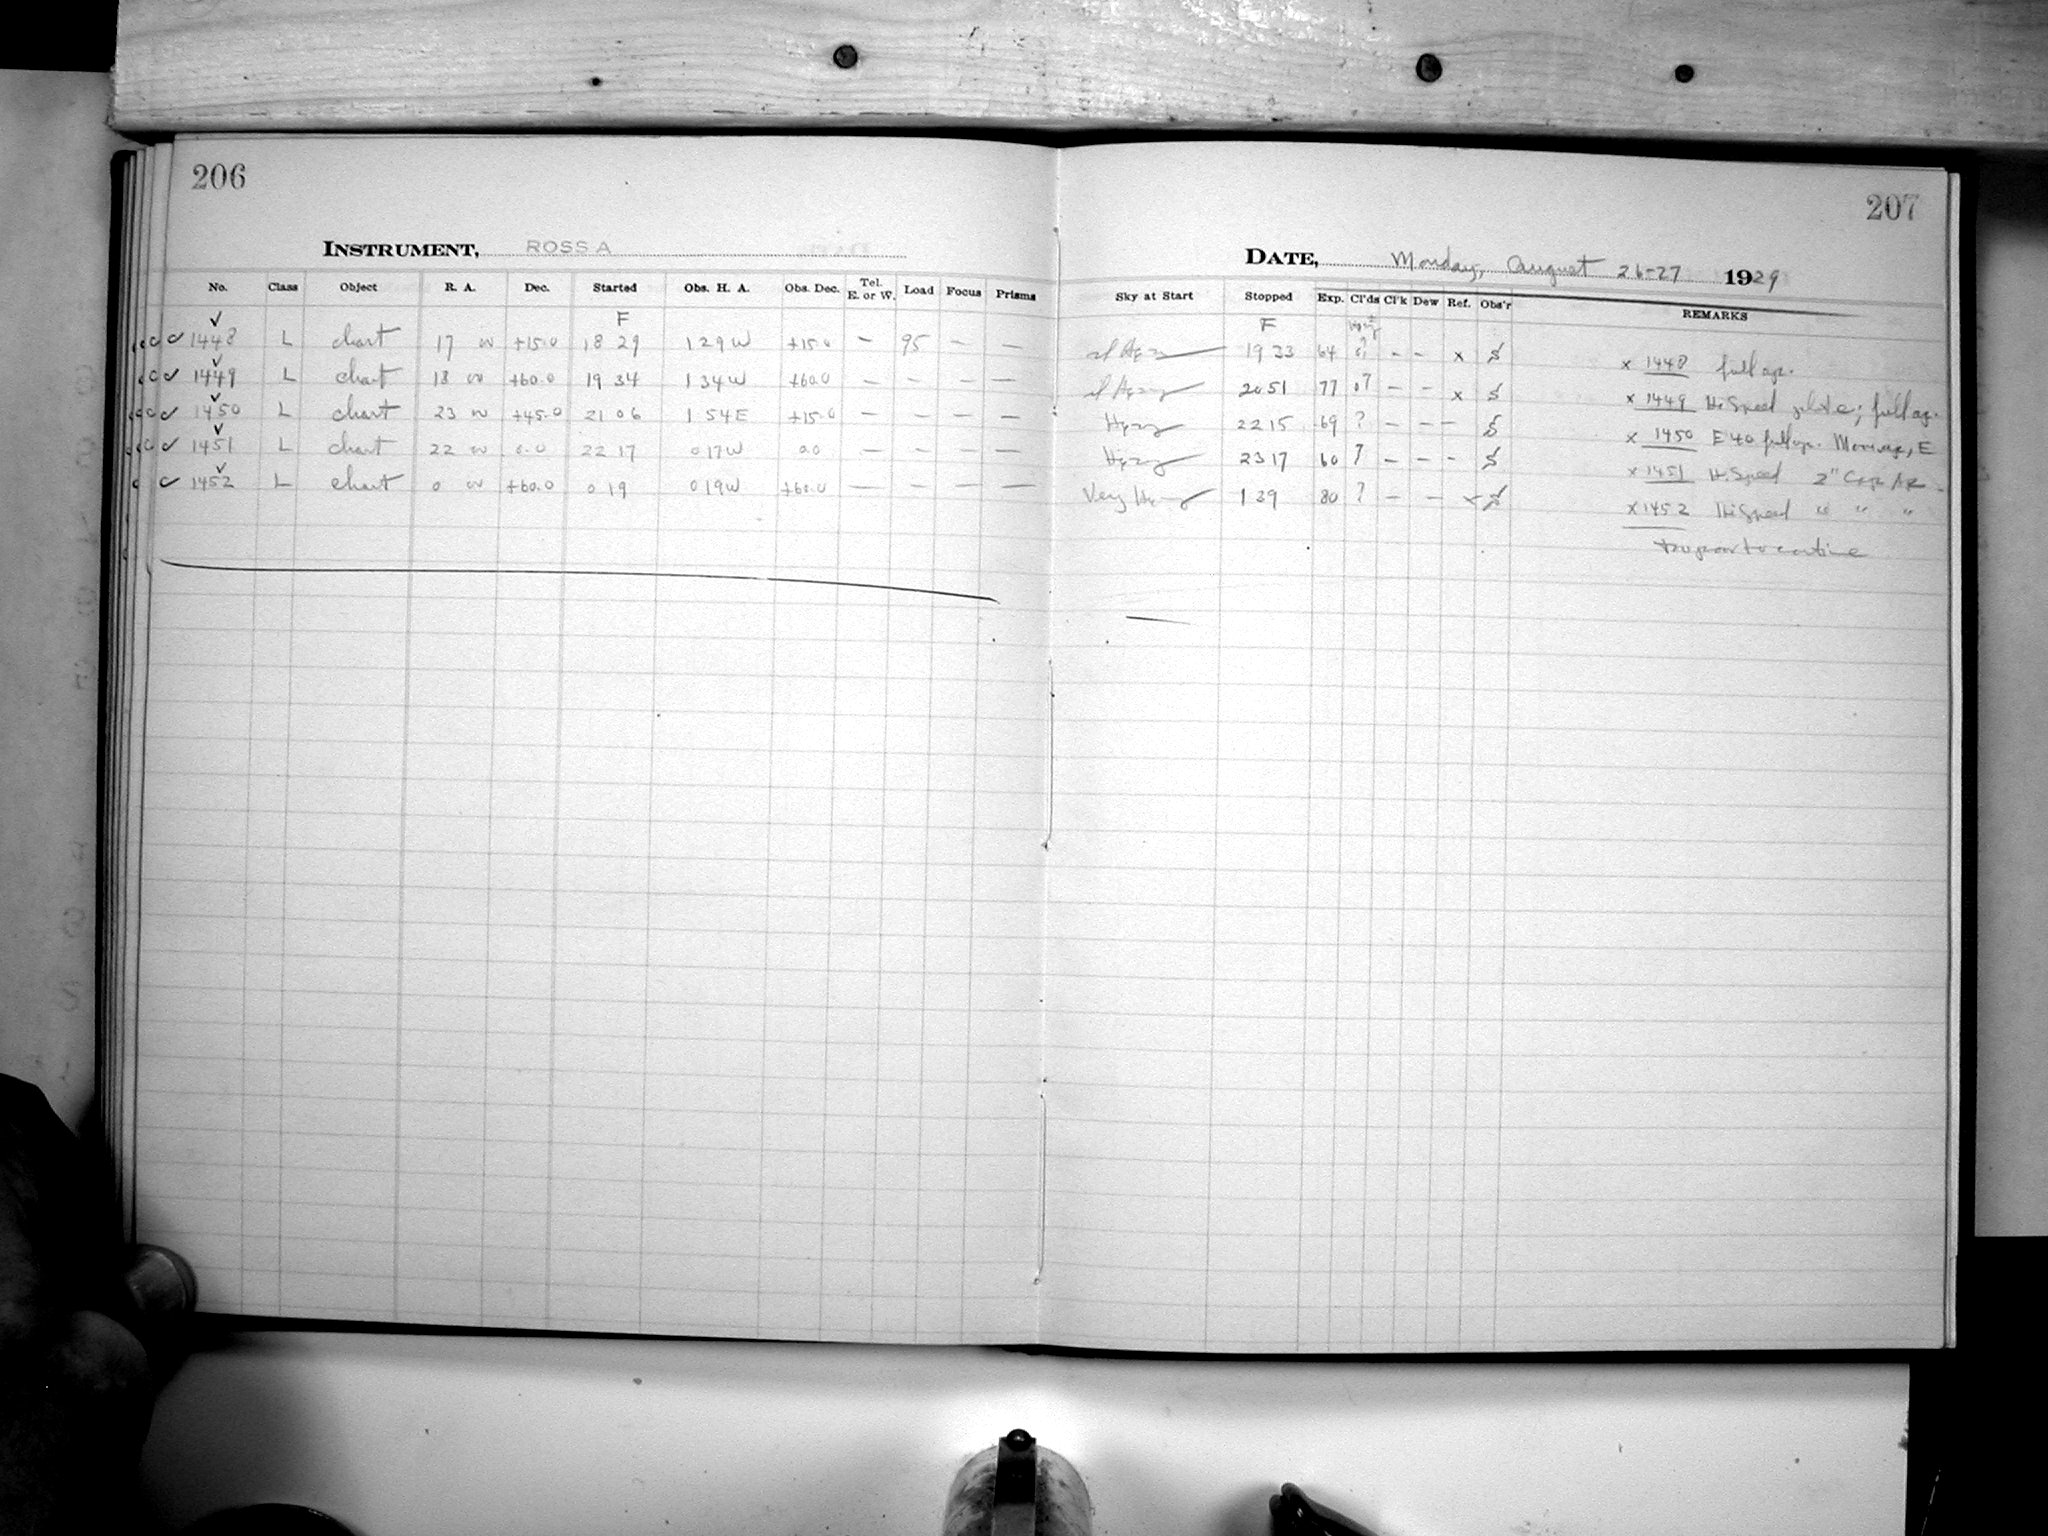 206
INSTRUMENT, ROSS A
No. Class Object R. A. Dec. Started Obs. H. A. Obs. Dec. Tel. E. or W. Load Focus Prisms
F
1448 L chart 17 00 +15.0 18 29 1 29 W +15.0 — 95 — —
1449 L chart 18 00 +60.0 19 34 1 34 W +60.0 — — — —
1450 L chart 23 00 +45.0 21 06 1 54 E +15.0 — — — —
1451 L chart 22 00 0.0 22 17 0 17 W 0.0 — — — —
1452 L chart 0 00 +60.0 0 19 0 19 W +60.0 — — — —
207
DATE, Monday, August 26-27 1929
Sky at Start Stopped Exp. Cl'ds Cl'k Dew Ref. Obs'r REMARKS
F
sl Hazy 19 33 64 ? - - x S x 1448 full ap.
sl Hazy 20 51 77 0? - - x S x 1449 Hi Speed plate; full ap.
Hazy 22 15 69 ? - - - S x 1450 E 40 full ap. E
Hazy 23 17 60 ? - - - S x 1451 Hi Speed 2" Cap Ap
Very Hazy 1 39 80 ? - - x S x 1452 Hi Speed " " "
to continue